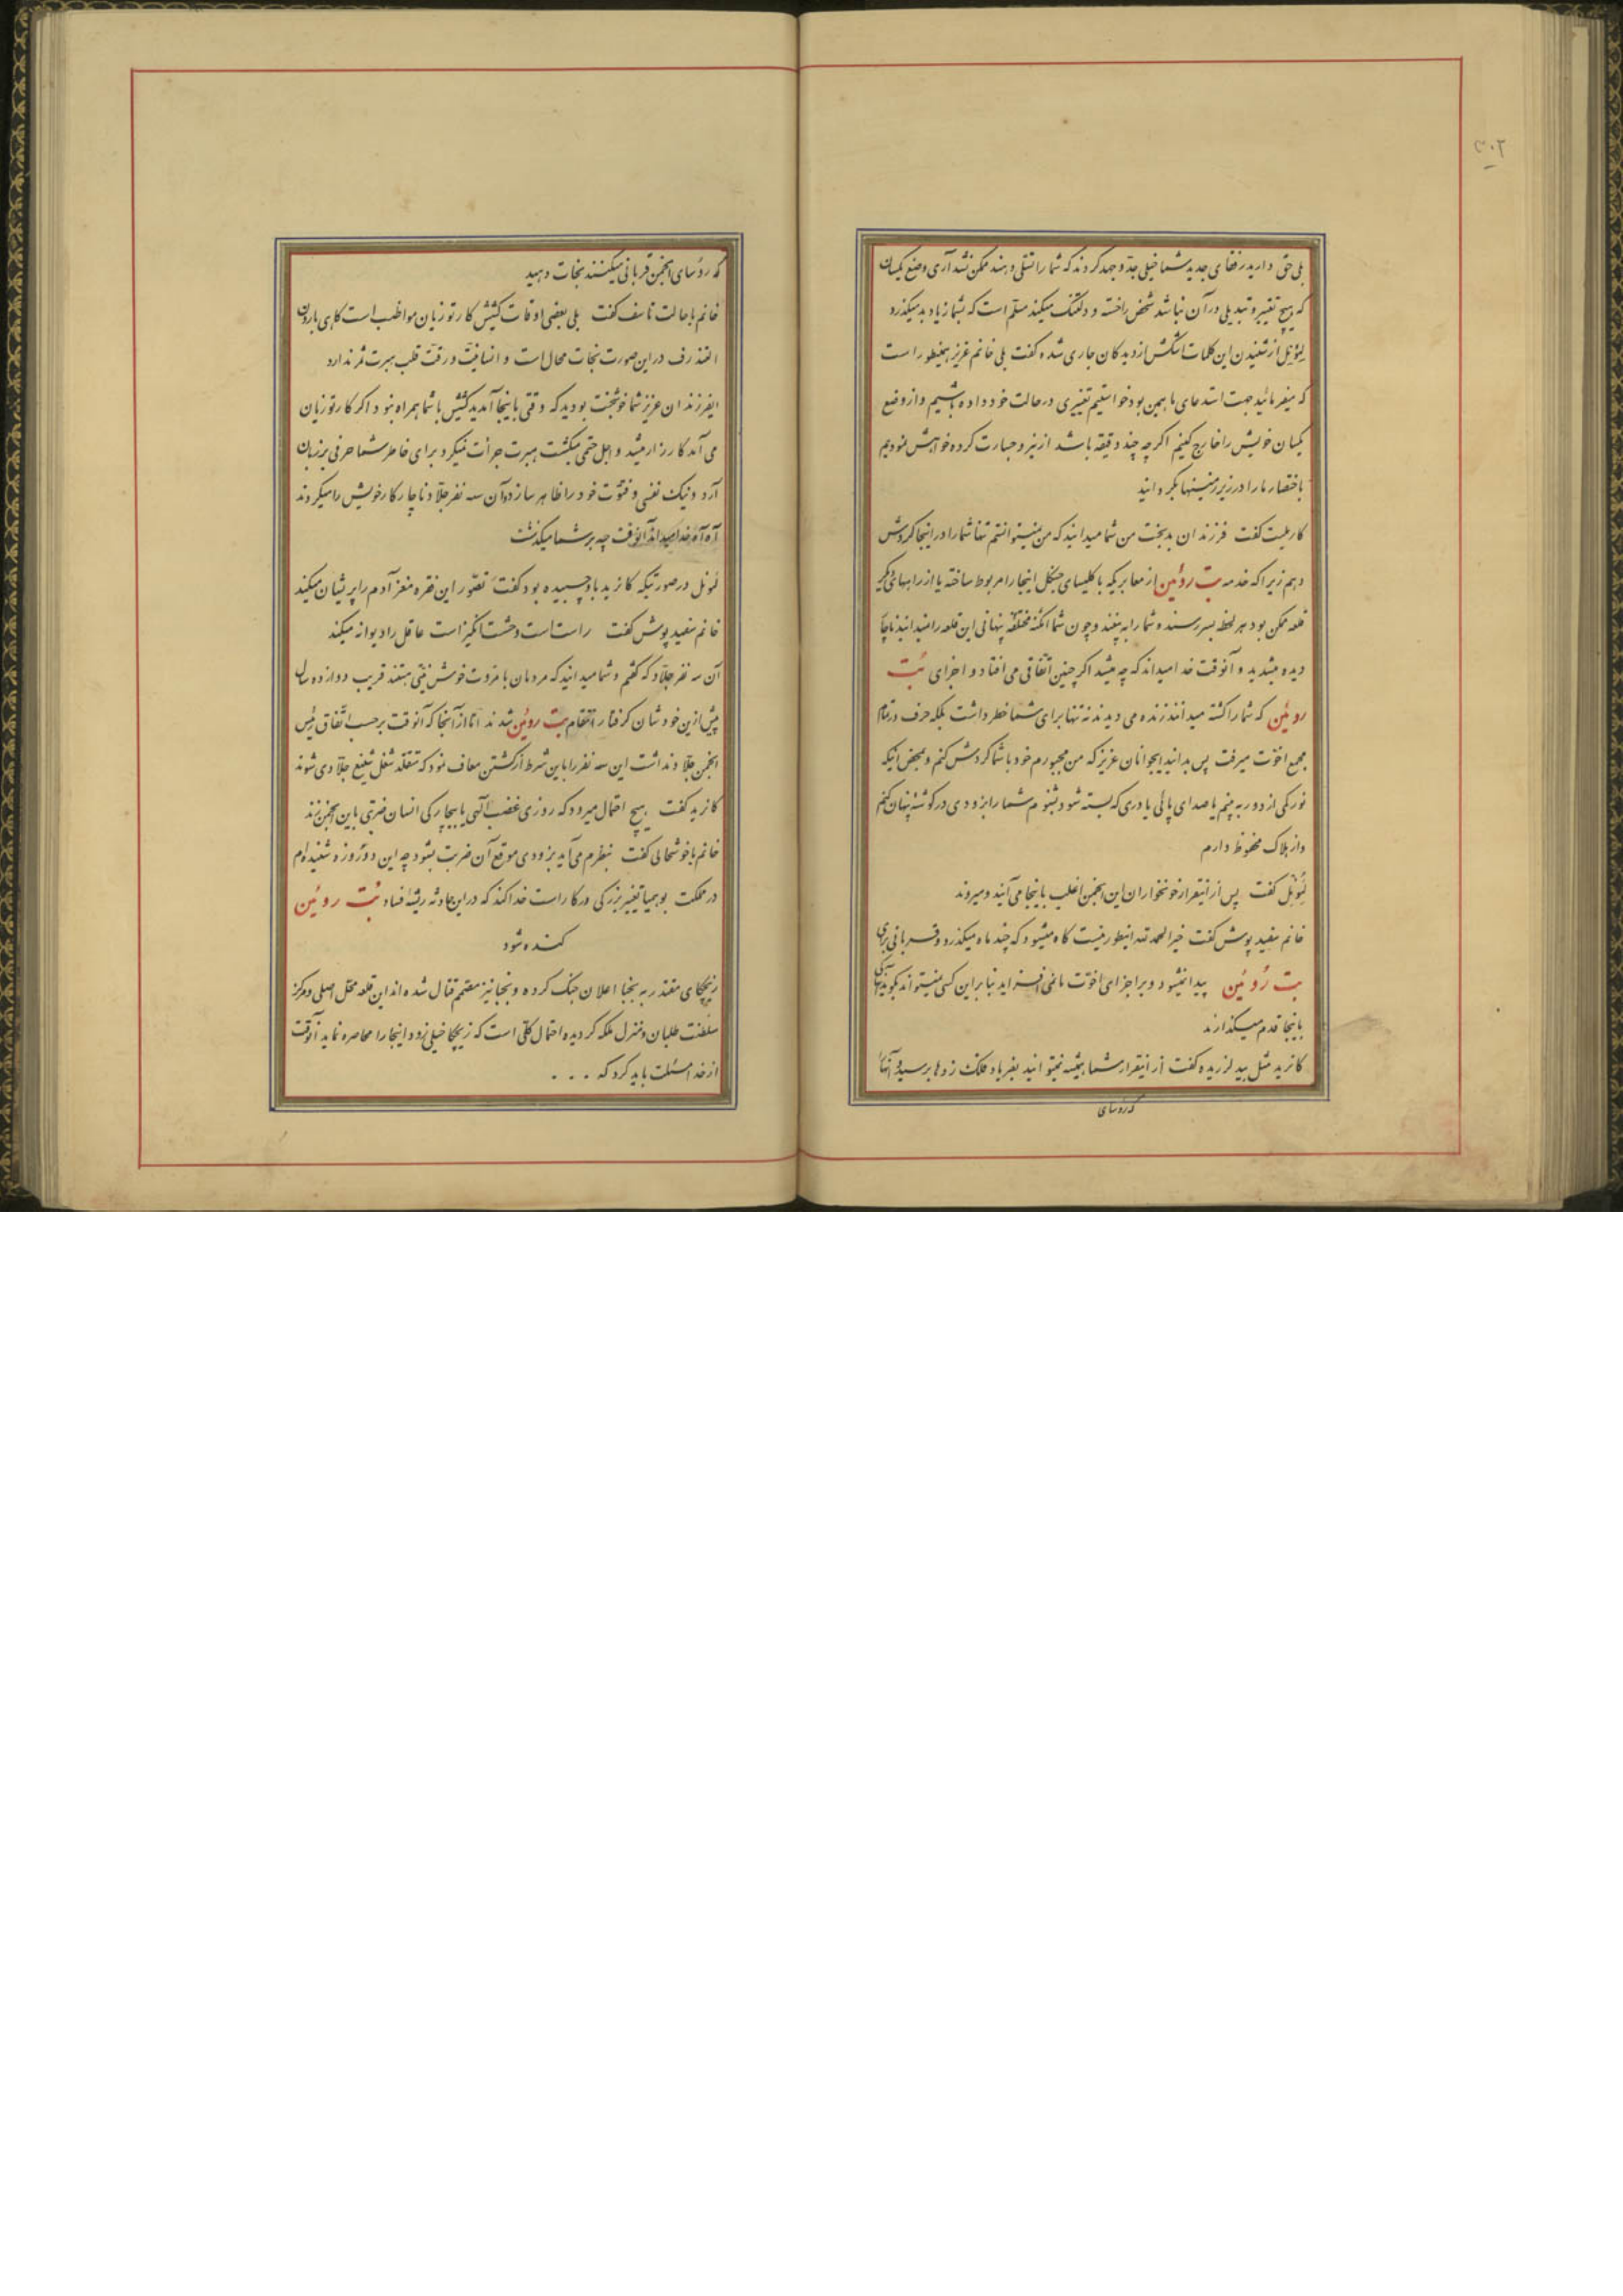 ۳۰۲
بلی حق دارید رفقای جدید شما خیلی جد و جهد کردند که شما را تسلی دهند ممکن نشد آری وضع یکسان
که هیچ تغییر و تبدیلی در آن نباشد شخص را خسته و دلتنک میکند مسلم است که بشما زیاد بد میکذرد
لیونل از شنیدن این کلمات اشکش از دیدکان جاری شده کفت بلی خانم عزیز همینطور است
که میفرمائید جهت استدعای ما همین بود خواستیم تغییری در حالت خود داده باشیم و از وضع
یکسان خویش را خارج کنیم اکرچه چند دقیقه باشد از نیرو جسارت کرده خواهش نمودیم
باختصار ما را در زیرزمینها بکردانید
کفت فرزندان بدبخت من شما میدانید که من نمیتوانستم تنها شما را در اینجا کردش
دهم زیرا که خدمه بت روئین از معابریکه با کلیسای جنکل اینجا را مربوط ساخته یا از راههای دیکر
قلعه ممکن بود هر لحظه بسر رسند و شما را به بینند و چون شما امکنه مختلفه پنهانی این قلعه را نمیدانید ناچار
دیده میشدید و آنوقت خدا میداند که چه میشد اکر چنین اتفاقی می افتاد و اجزای بت
روئین که شما را کشته میدانند زنده می دیدند نه تنها برای شما خطر داشت بلکه حرف در تمام
مجمع اخوت میرفت پس بدانید ایجوانان عزیز که من مجبورم خود با شما کردش کنم و بمحض اینکه
نورکی از دور به بینم یا صدای پائی یا دری که بسته شود بشنوم شما را بزودی در کوشه پنهان کنم
و از هلاک محفوظ دارم
لیونل کفت پس از اینقرار خونخواران این انجمن اغلب باینجا می آیند و میروند
خانم سفیدپوش کفت خیر الحمد لله اینطور نیست کاه میشود که چند ماه میکذرد و قربانی برای
بت روئین پیدا نمیشود و بر اجزای اخوت بنابراین کسی نمیتواند بکوید کی آنها
باینجا قدم میکذارند
کانرید مثل بید لرزیده کفت از اینقرار شما همیشه نمیتوانید بفریاد فلک زدها برسید و آنها
که رؤسای
که رؤسای انجمن قربانی میکنند نجات دهید
خانم با حالت تاسف کفت بلی بعضی اوقات کشیش کارتوزیان مواظب است کاهی بارون
در این صورت نجات محال است و انسانیت و رقت قلب ثمر ندارد
ایفرزندان عزیز شما خوشبخت بودید که وقتی باینجا آمدید کشیش با شما همراه نبود اکر کارتوزیان
می آمد کار زار میشد و اجل حتمی میکشت جرأت نمیکرد برای خاطر شما حرفی بر زبان
آرد و نیک نفسی و فتوت خود را ظاهر سازد و آن سه نفر جلاد ناچار کار خویش را میکردند
آه آه خدا میداند آنوقت چه بر شما میکذشت
لیونل در صورتیکه کانرید باو چسبیده بود کفت تصور این فقره مغز آدم را پریشان میکند
خانم سفیدپوش کفت راست است وحشت انکیز است عاقل را دیوانه میکند
آن سه نفر جلاد که کفتم و شما میدانید که مردمان با مروت خوش نیتی هستند قریب دوازده سال
پیش از این خودشان کرفتار انتقام بت روئین شدند اما از آنجا که آنوقت بر حسب اتفاق رئیس
انجمن جلاد نداشت این سه نفر را باین شرط از کشتن معاف نمود که متقلد شغل شنیع جلادی شوند
کانرید کفت هیچ احتمال میرود که روزی غضب الهی یا بیچارکی انسان ضربتی باین انجمن زند
خانم با خوشحالی کفت بنظرم می آید بزودی موقع آن ضربت بشود چه این دو روزه شنیده ام
در مملکت بوهمیا تغییر بزرکی در کار است خدا کند که در این حادثه ریشه فساد بت روئین
کنده شود
زیچکای مقتدر به نجبا اعلان جنک کرده و نجبا نیز مصمم قتال شده اند این قلعه محل اصلی و مرکز
سلطنت طلبان و منزل ملکه کردیده احتمال کلی است که زیچکا خیلی زود اینجا را محاصره نماید آنوقت
از خدا مسئلت باید کرد که . . .